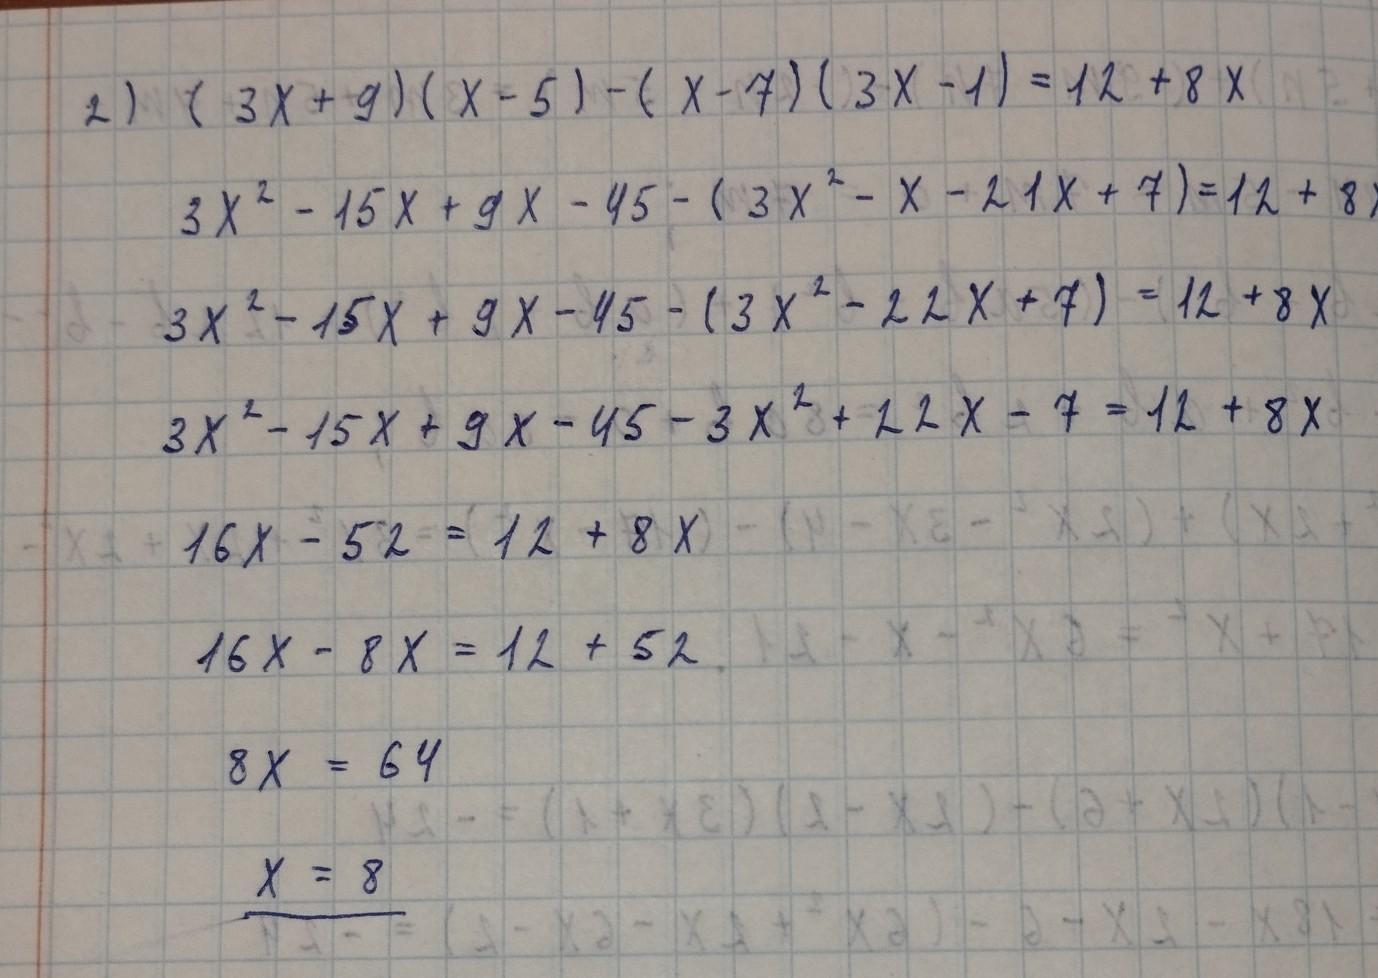 2) (3x+9)(x-5)-(x-7)(3x-1)=12+8x
3x²-15x+9x-45-(3x²-x-21x+7)=12+8x
3x²-15x+9x-45-(3x²-22x+7)=12+8x
3x²-15x+9x-45-3x²+22x-7=12+8x
16x-52=12+8x
16x-8x=12+52
8x=64
x=8